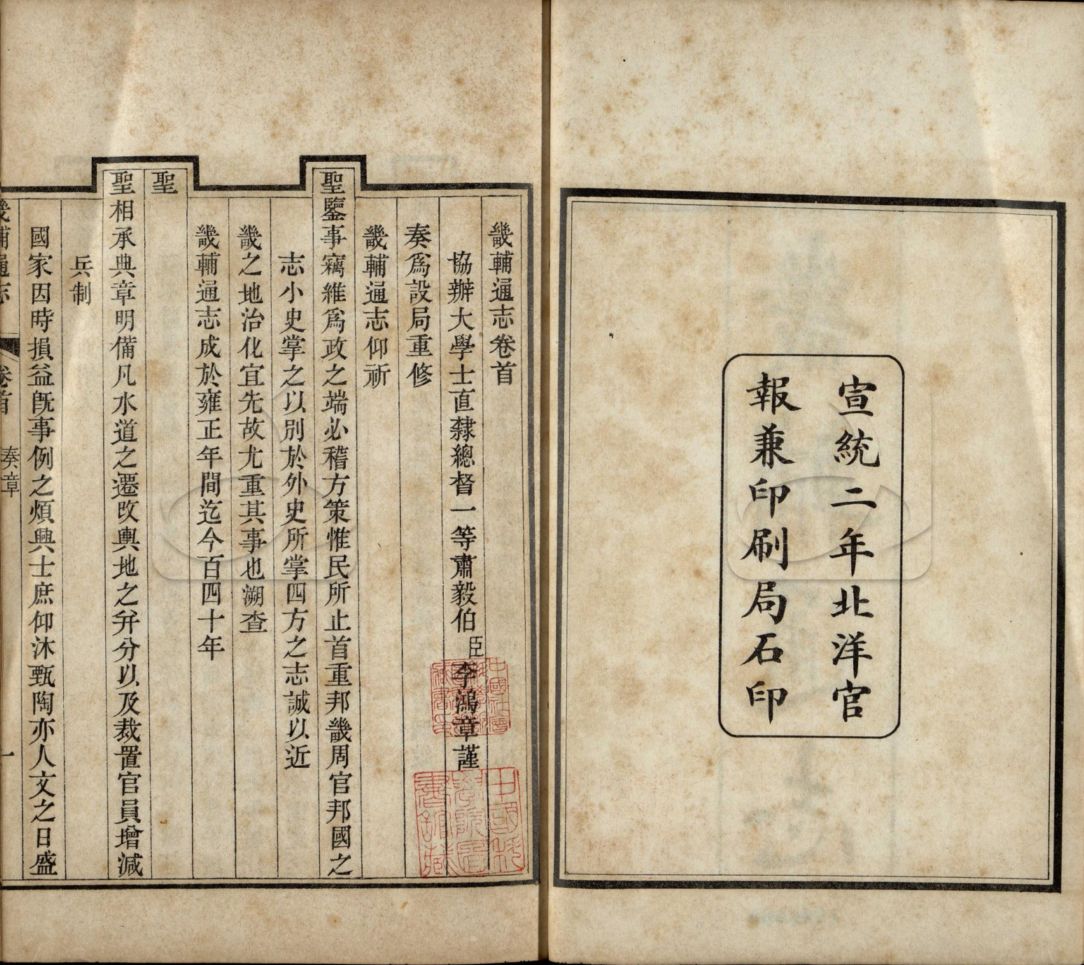 宣統二年北洋官
報兼印刷局石印
畿輔通志卷首
協辦大學士直隸總督一等肅毅伯臣李鴻章謹
奏爲設局重修
畿輔通志仰祈
聖鑒事竊維爲政之端必稽方策惟民所止首重邦畿周官邦國之
志小史掌之以別於外史所掌四方之志誠以近
畿之地治化宜先故尤重其事也溯查
畿輔通志成於雍正年間迄今百四十年
聖
聖相承典章明備凡水道之遷改輿地之幷分以及裁置官員增減
兵制
國家因時損益旣事例之煩興士庶仰沐甄陶亦人文之日盛
畿輔通志 卷首 奏章 一